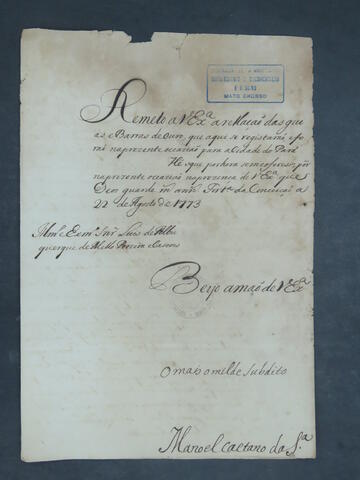 MATO GROSSO
Remeto a VEx.ª a rellação das que
as e Barras de Ouro, que aqui se registarão e fo
rão na prezente occazião para a Cidade do Pará
He o que por hora se me offerece, por
na prezente occazião na prezença de VEx.ª que
Deos guarde m.s ann.s Fort.ª da Conceição a
22 de Agosto de 1773
Illm.º e Exm.º Snr. Luis de Albu
querque de Mello Pereira Caceres
Beijo a mão de VEx.ª
O mais omelde Subdito
Manoel Caetano da S.ª